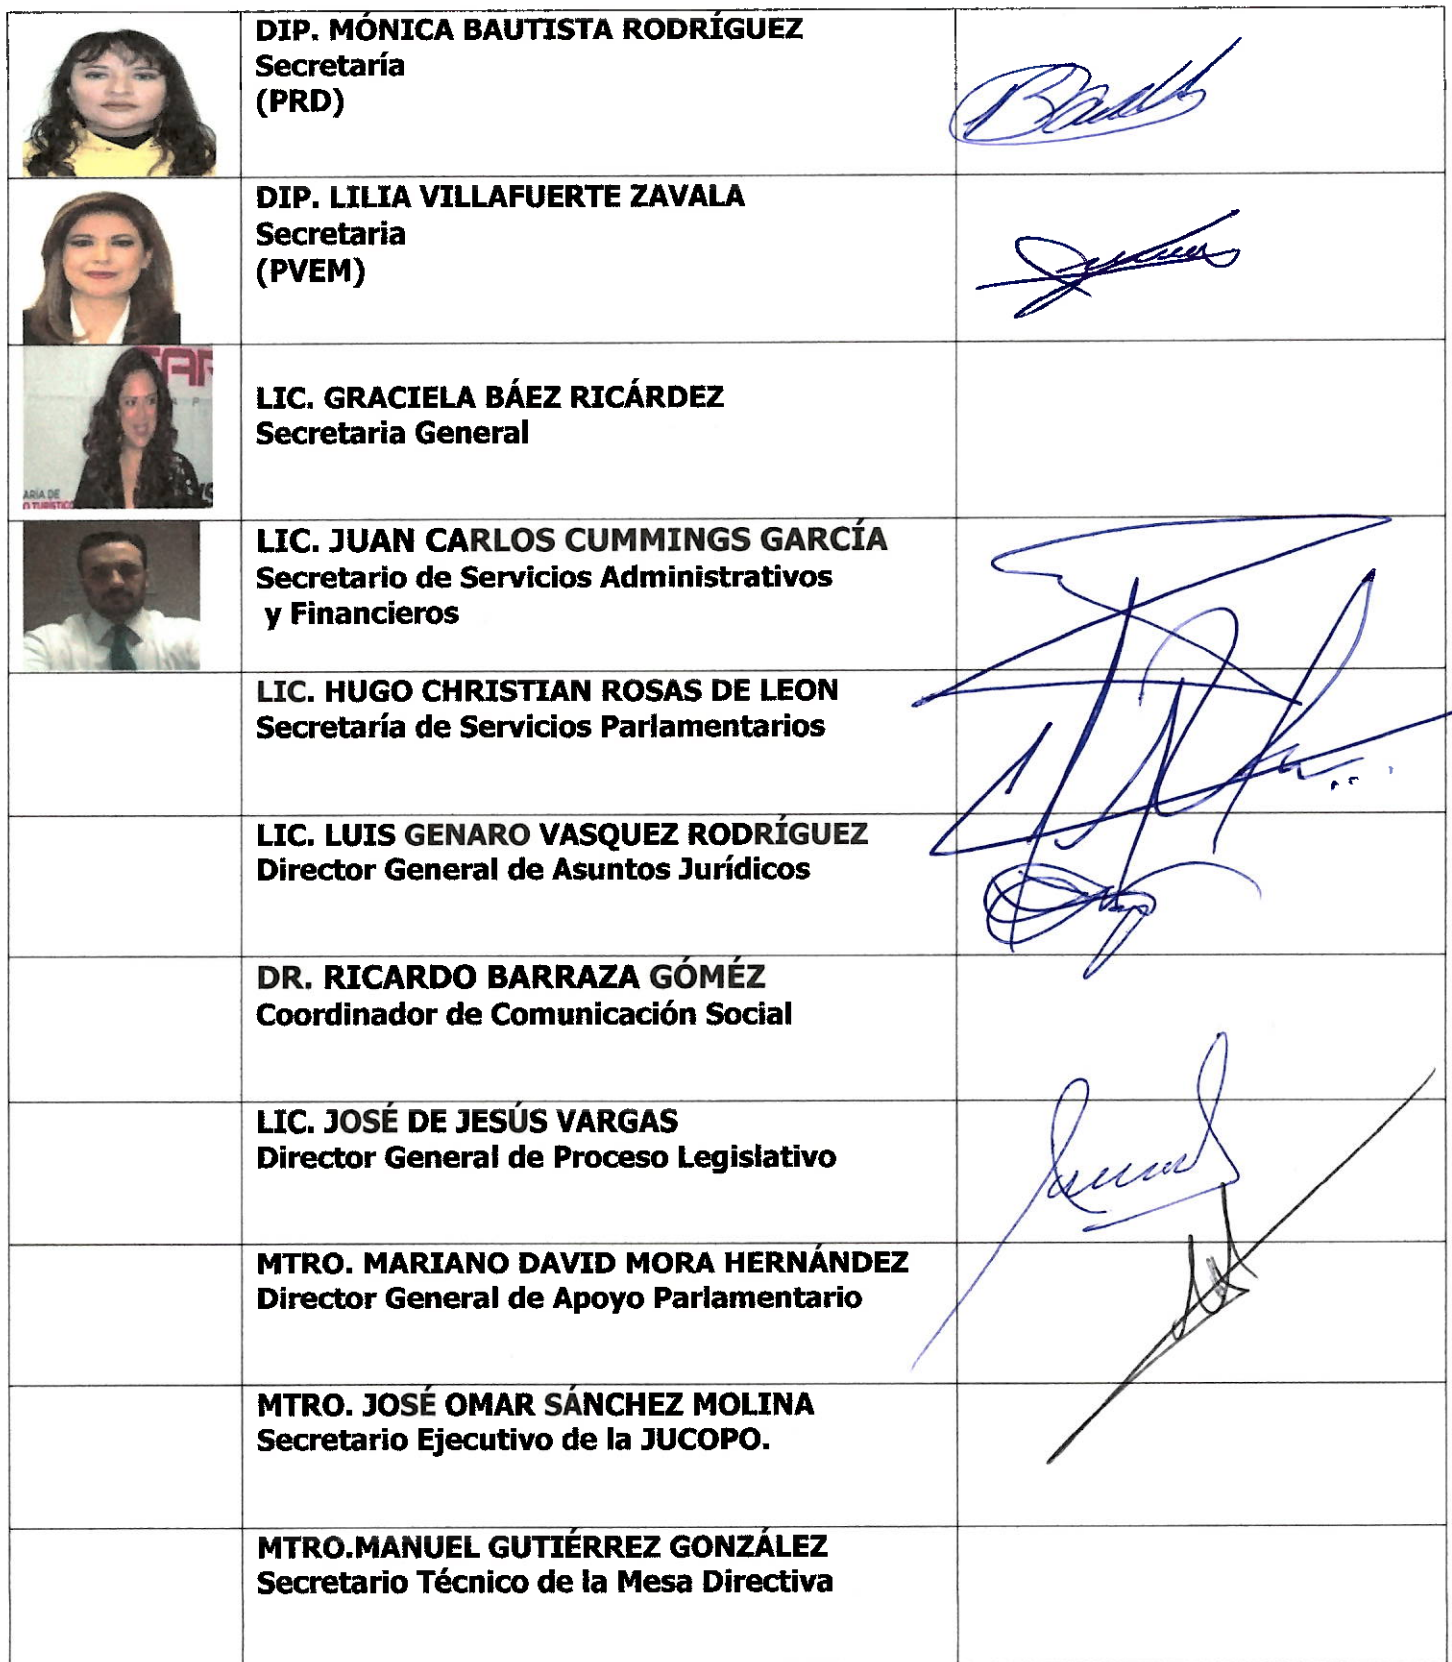 DIP. MÓNICA BAUTISTA RODRÍGUEZ
Secretaría
(PRD)
DIP. LILIA VILLAFUERTE ZAVALA
Secretaria
(PVEM)
LIC. GRACIELA BÁEZ RICÁRDEZ
Secretaria General
ARÍA DE
O TURÍSTICO
LIC. JUAN CARLOS CUMMINGS GARCÍA
Secretario de Servicios Administrativos
y Financieros
LIC. HUGO CHRISTIAN ROSAS DE LEON
Secretaría de Servicios Parlamentarios
LIC. LUIS GENARO VASQUEZ RODRÍGUEZ
Director General de Asuntos Jurídicos
DR. RICARDO BARRAZA GÓMÉZ
Coordinador de Comunicación Social
LIC. JOSÉ DE JESÚS VARGAS
Director General de Proceso Legislativo
MTRO. MARIANO DAVID MORA HERNÁNDEZ
Director General de Apoyo Parlamentario
MTRO. JOSÉ OMAR SÁNCHEZ MOLINA
Secretario Ejecutivo de la JUCOPO.
MTRO.MANUEL GUTIÉRREZ GONZÁLEZ
Secretario Técnico de la Mesa Directiva